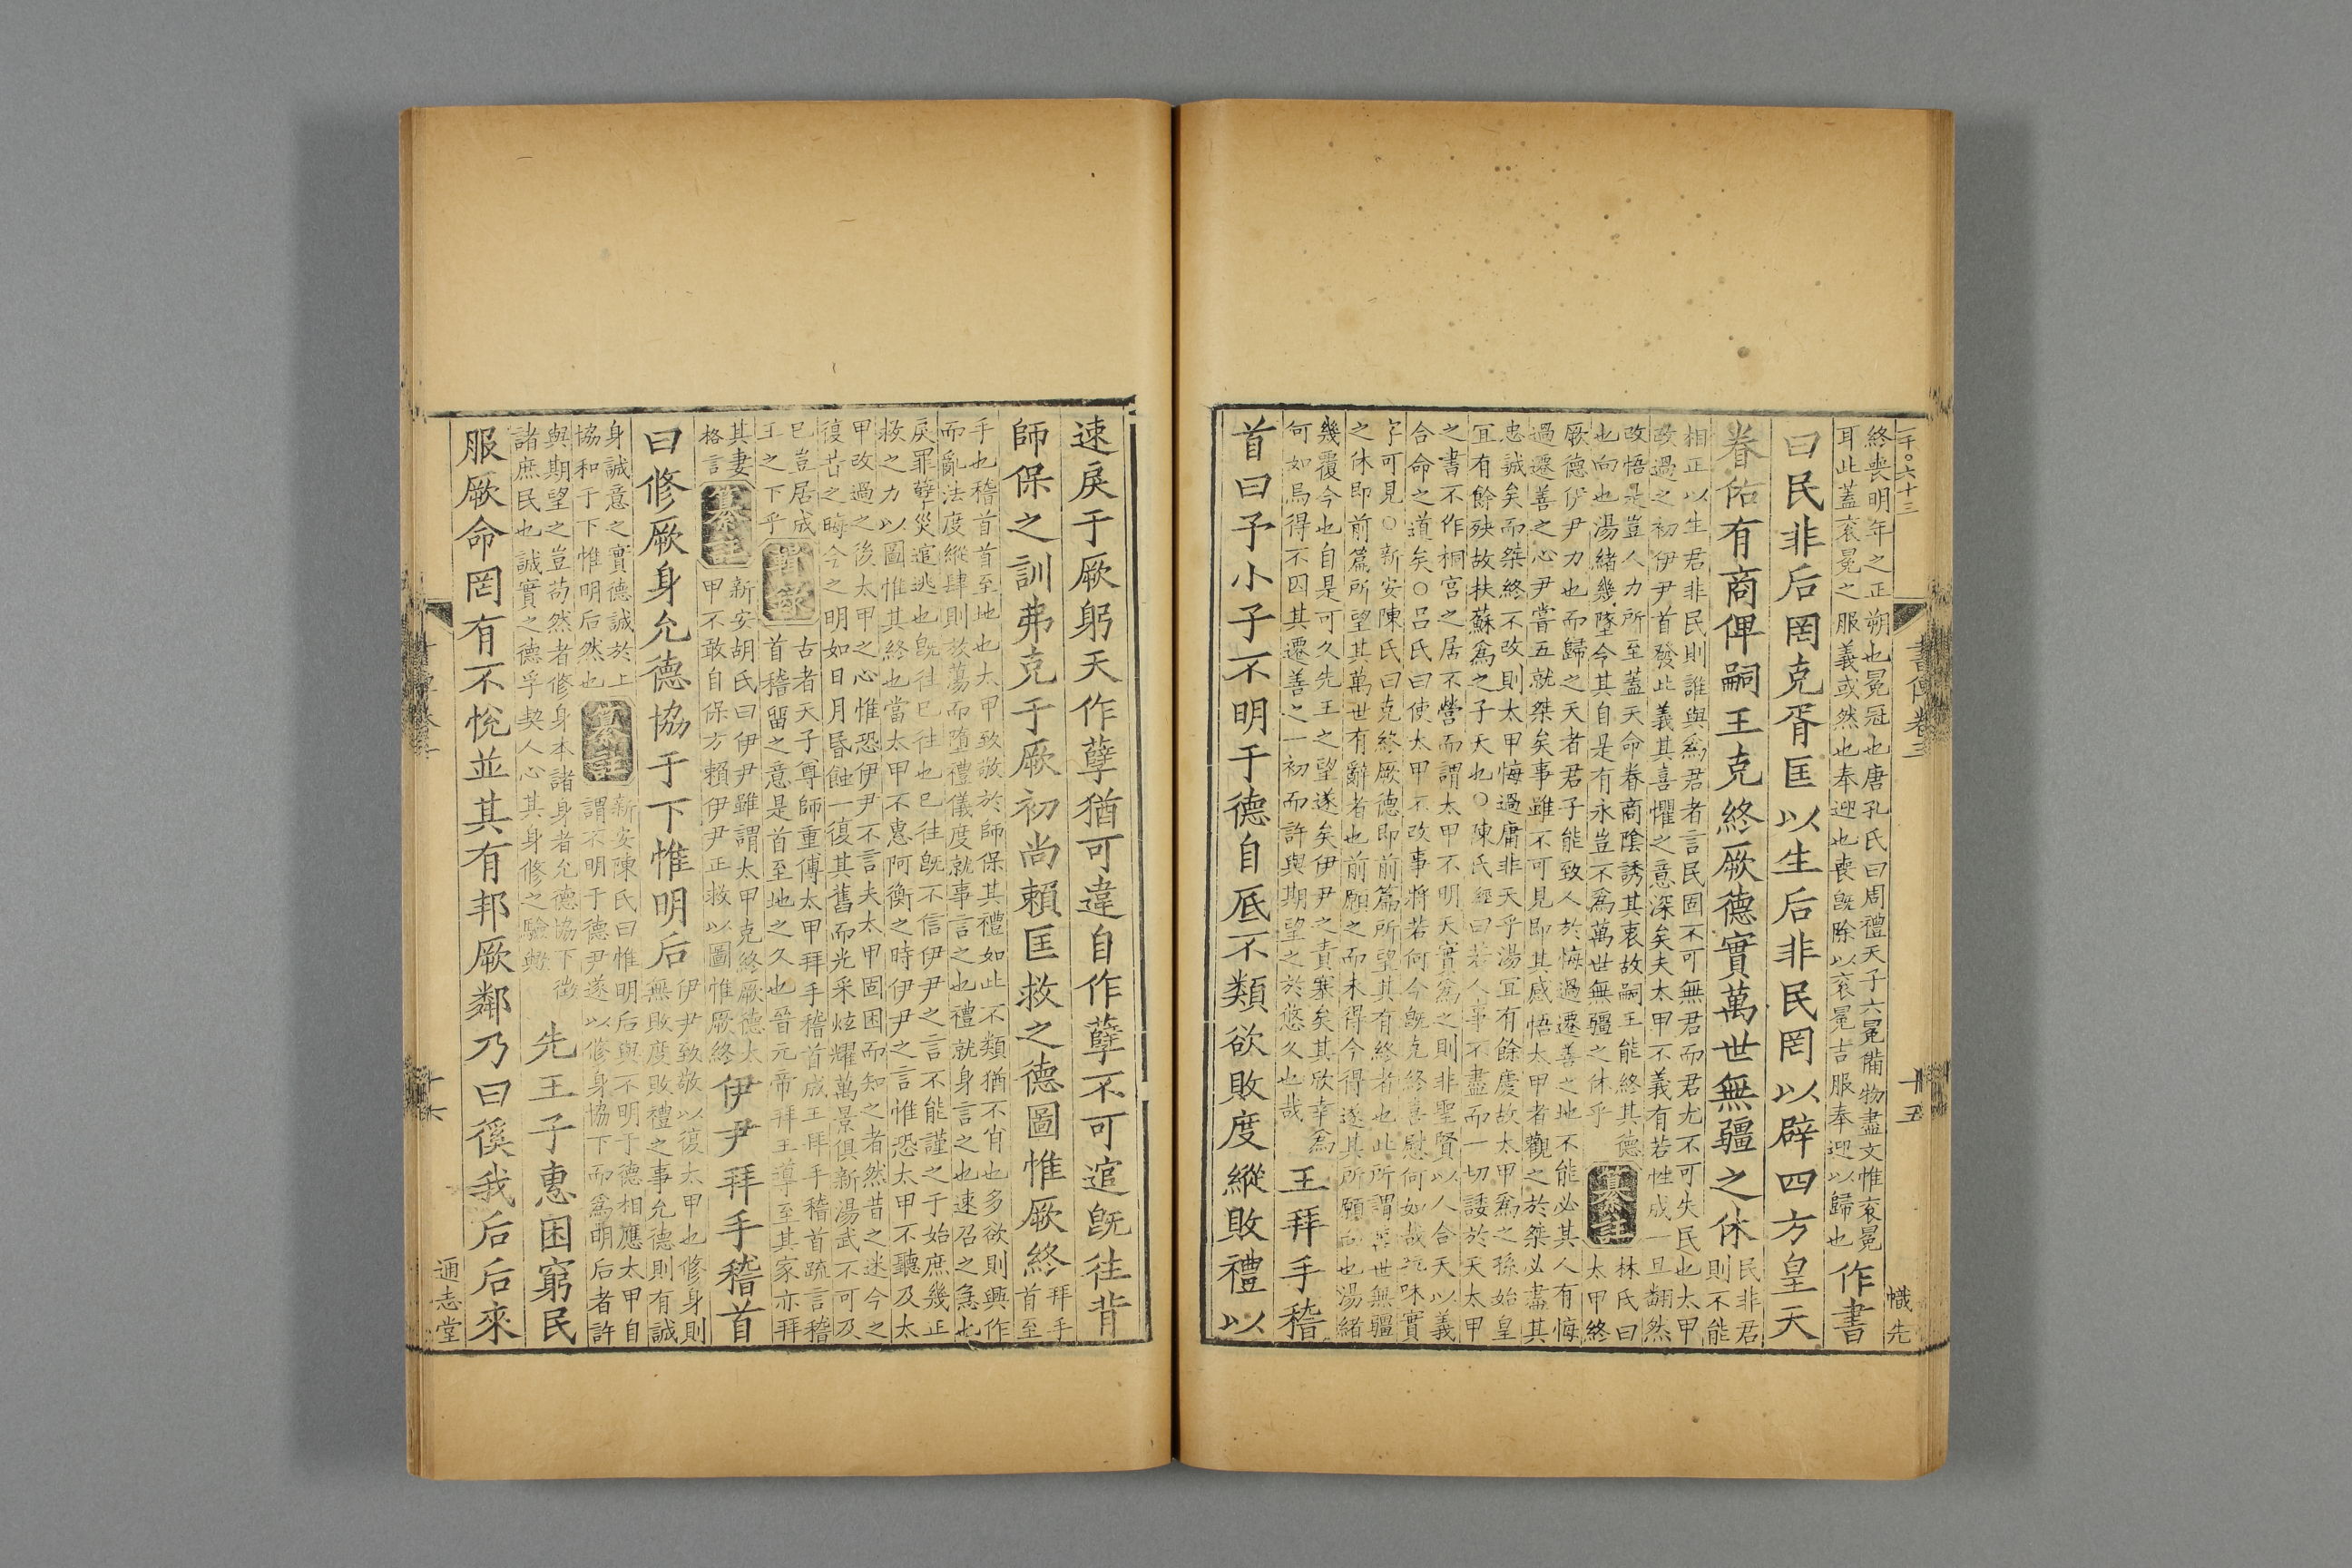 一千〇六十三
書傳卷三
十五
幟先
終喪明年之正朔也冕冠也唐孔氏曰周禮天子六冕備物盡文惟衮冕
耳此蓋衮冕之服義或然也奉迎也喪旣除以衮冕吉服奉迎以歸也
作書
曰民非后罔克胥匡以生后非民罔以辟四方皇天
眷佑有商俾嗣王克終厥德實萬世無疆之休
民非君
則不能
相正以生君非民則誰與爲君者言民固不可無君而君尤不可失民也太甲
改過之初伊尹首發此義其喜懼之意深矣夫太甲不義有若性成一旦翻然
改悟是豈人力所至蓋天命眷商陰誘其衷故嗣王能終其德
也向也湯緒幾墜今其自是有永豈不爲萬世無疆之休乎
纂註
林氏曰
太甲終
厥德伊尹力也而歸之天者君子能致人於悔過遷善之地不能必其人有悔
過遷善之心尹嘗五就桀矣事雖不可見即其感悟太甲者觀之於桀必盡其
忠誠矣而桀終不改則太甲悔過庸非天乎湯宜有餘慶故太甲爲之孫始皇
宜有餘殃故扶蘇爲之子天也〇陳氏經曰若人事不盡而一切諉於天太甲
之書不作桐宮之居不營而謂太甲不明天實爲之則非聖賢以人合天以義
合命之道矣〇呂氏曰使太甲不改事將若何今旣克終喜慰何如哉玩味實
字可見〇新安陳氏曰克終厥德即前篇所望其有終者也此所謂萬世無疆
之休即前篇所望其萬世有辭者也前願之而未得今得遂其所願而也湯緒
幾覆今也自是可久先王之望遂矣伊尹之責塞矣其欣幸爲
何如烏得不因其遷善之一初而許與期望之於悠久也哉
王拜手稽
首曰予小子不明于德自底不類欲敗度縱敗禮以
速戾于厥躬天作孽猶可違自作孽不可逭旣往背
師保之訓弗克于厥初尚賴匡救之德圖惟厥終
拜手
首至
手也稽首首至地也太甲致敬於師保其禮如此不類猶不肖也多欲則興作
而亂法度縱肆則放蕩而隳禮儀度就事言之也禮就身言之也速召之急也
戾罪孽災逭逃也旣往已往也已往旣不信伊尹之言不能謹之于始庶幾正
救之力以圖惟其終也當太甲不惠阿衡之時伊尹之言惟恐太甲不聽及太
甲改過之後太甲之心惟恐伊尹不言夫太甲固困而知之者然昔之迷今之
復昔之晦今之明如日月昏蝕一復其舊而光采炫耀萬景俱新湯武不可及
已豈居成
王之下乎
輯錄
古者天子尊師重傅太甲拜手稽首成王拜手稽首疏言稽
首稽留之意是首至地之久也晉元帝拜王導至其家亦拜
其妻
格言
纂註
新安胡氏曰伊尹雖謂太甲克終厥德太
甲不敢自保方賴伊尹正救以圖惟厥終
伊尹拜手稽首
曰修厥身允德協于下惟明后
伊尹致敬以復太甲也修身則
無敗度敗禮之事允德則有誠
身誠意之實德誠於上
協和于下惟明后然也
纂註
新安陳氏曰惟明后與不明于德相應太甲自
謂不明于德尹遂以修身協下而爲明后者許
與期望之豈苟然者修身本諸身者允德協下徴
諸庶民也誠實之德孚契人心其身修之驗歟
先王子惠困窮民
服厥命罔有不悅並其有邦厥鄰乃曰徯我后后來
十六
通志堂